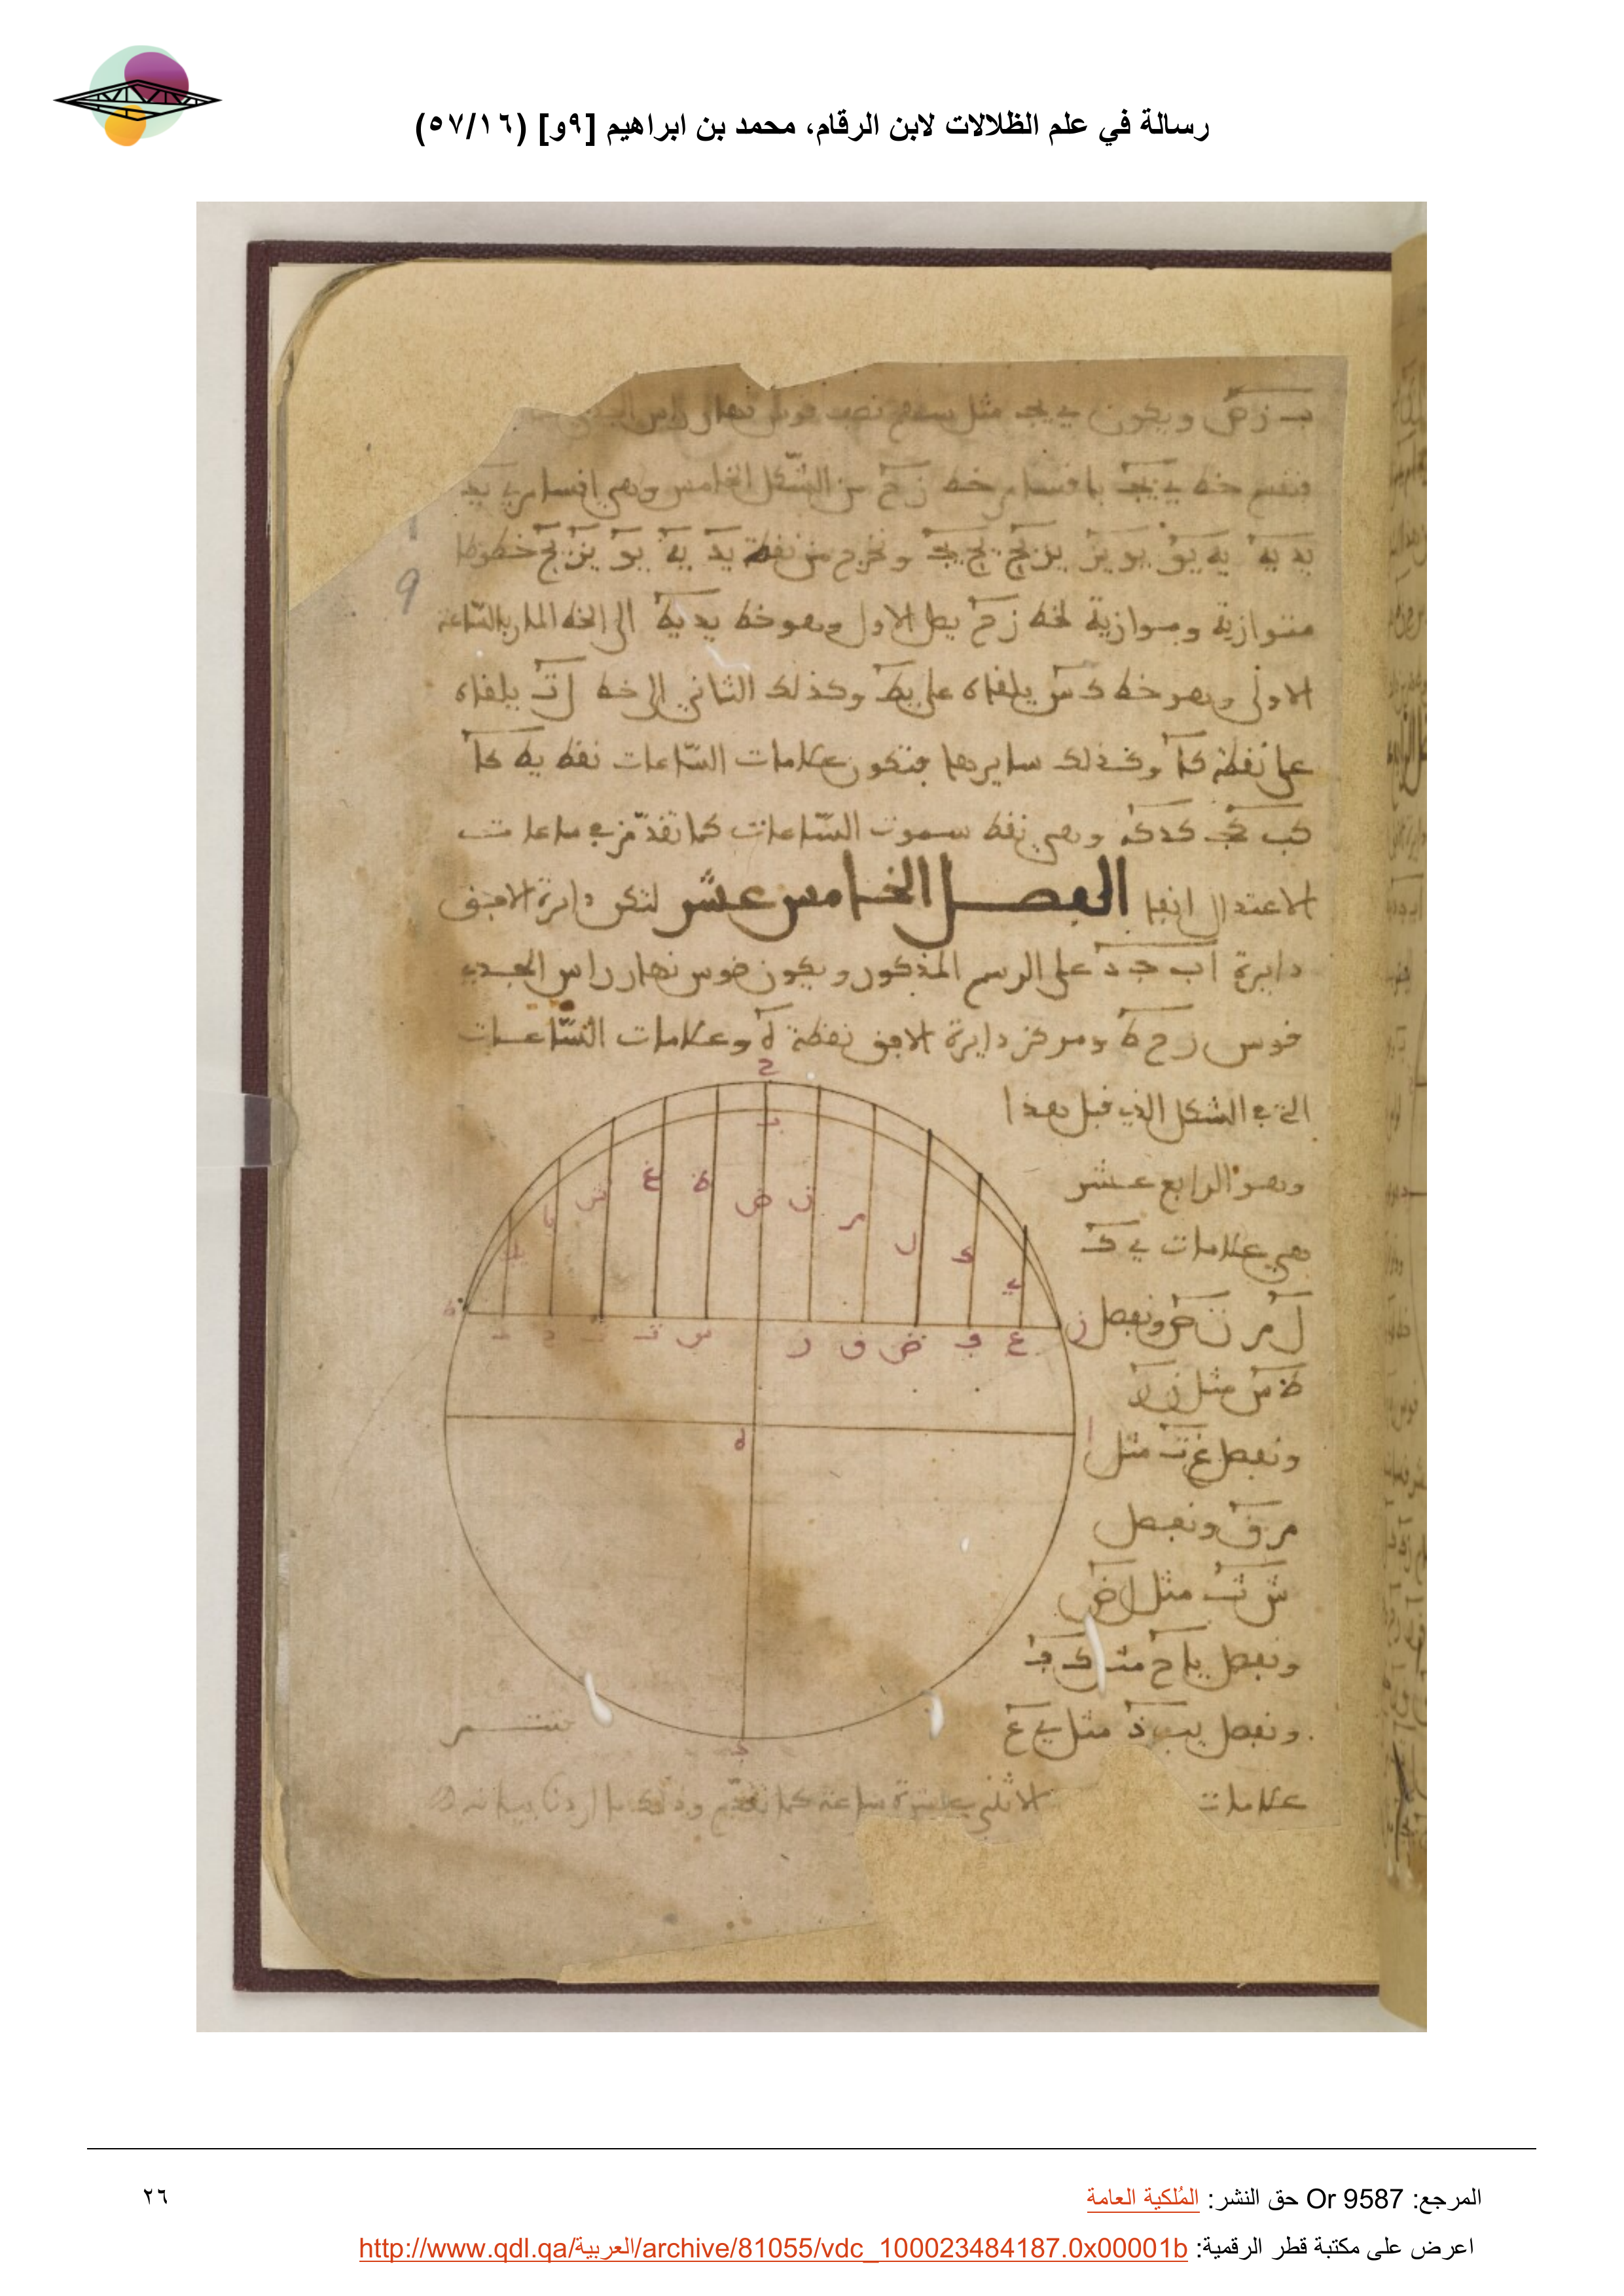 رسالة في علم الظلالات لابن الرقام، محمد بن ابراهيم [٩و] (٥٧/١٦)
ويكون يج مثل سهم نصف قوس نهار راس
فنقسم خط ي يج باقسام خط زح من الشكل الخامس وهي اقسام ي يد
يد يه يه يو يو يز يز يح يح يج ونخرج من نقط يد يه يو يز يح خطوطا
9
متوازية وموازية لخط زح يصل الاول وهو خط يد يط الى الخط المار بالساعة
الاولى وهو خط ك س يلقاه على يط وكذلك الثاني الى خط ل ت يلقاه
على نقطة كا وكذلك سايرها فتكون علامات الساعات نقط يط كا
كب كج كد كه وهي نقط سموت الساعات كما تقدم في ساعات
الاعتدال انفا الفصل الخامس عشر لتكن دايرة الافق
دايرة اب جد على الرسم المذكور ويكون قوس نهار راس الجدي
قوس زح ط ومركز دايرة الافق نقطة ه وعلامات الساعات
التي في الشكل الذي قبل هذا
وهو الرابع عشر
هي علامات ي ك
ل م ن ص ونفصل
ظ س مثل ن ر
ونفصل غ ت مثل
م ق ونفصل
ش ث مثل ل ض
ونفصل يا خ مثل ك ف
ونفصل يب ذ مثل ي ع
علامات الاثنتي عشرة ساعة كما تقدم وذلك ما اردنا بيانه
المرجع: Or 9587 حق النشر: المُلكية العامة
٢٦
اعرض على مكتبة قطر الرقمية: http://www.qdl.qa/العربية/archive/81055/vdc_100023484187.0x00001b